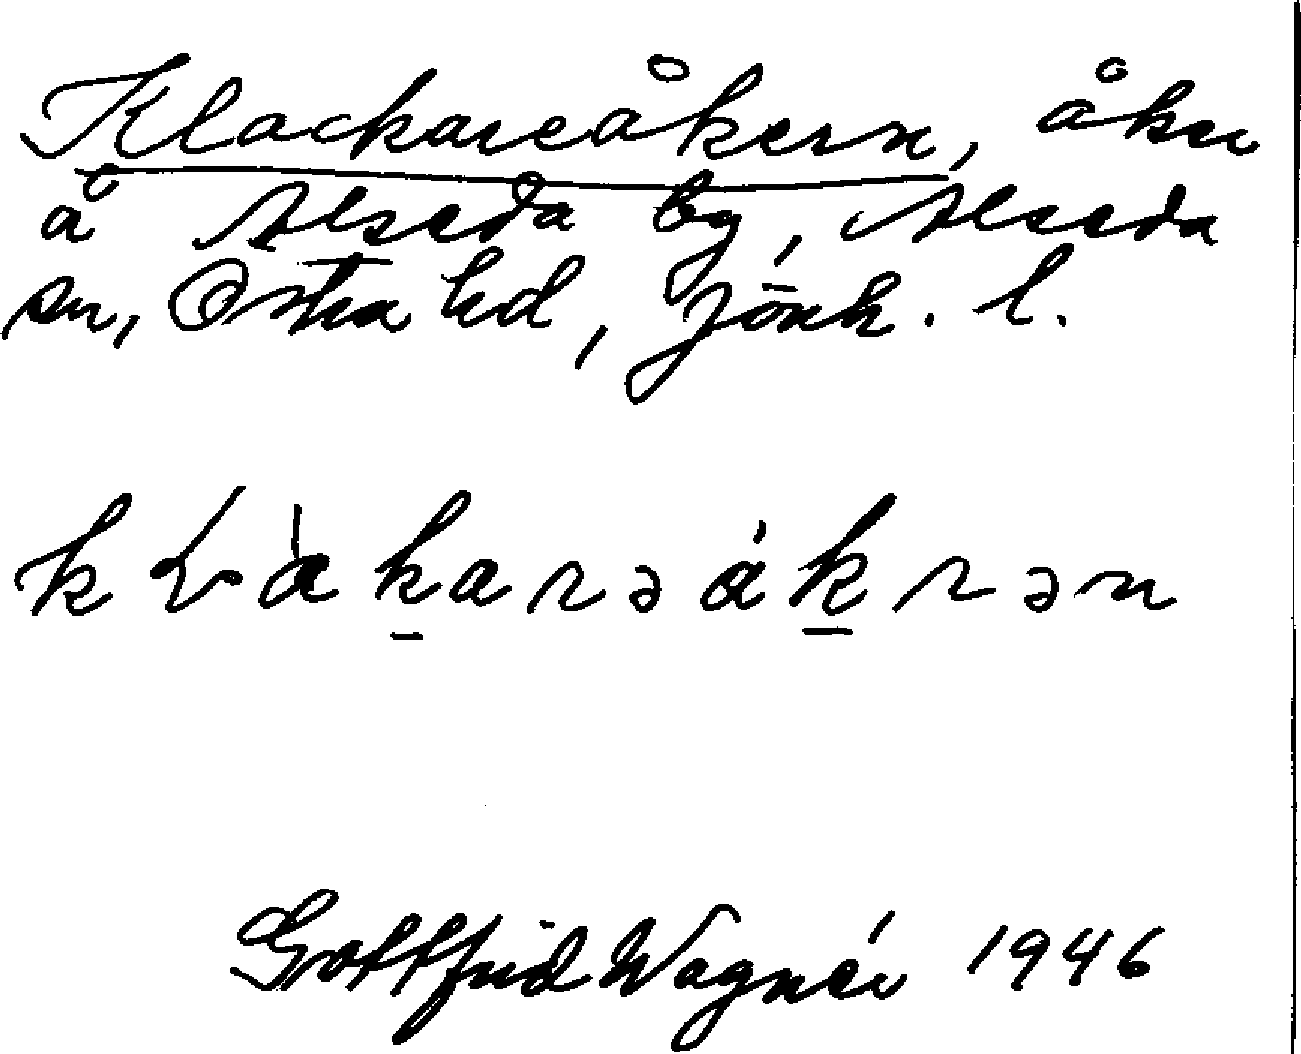 Klockareåkern, åker
å Alseda by, Alseda
sn, Östra hd, Jönk. l.
Gottfrid Wagnér 1946